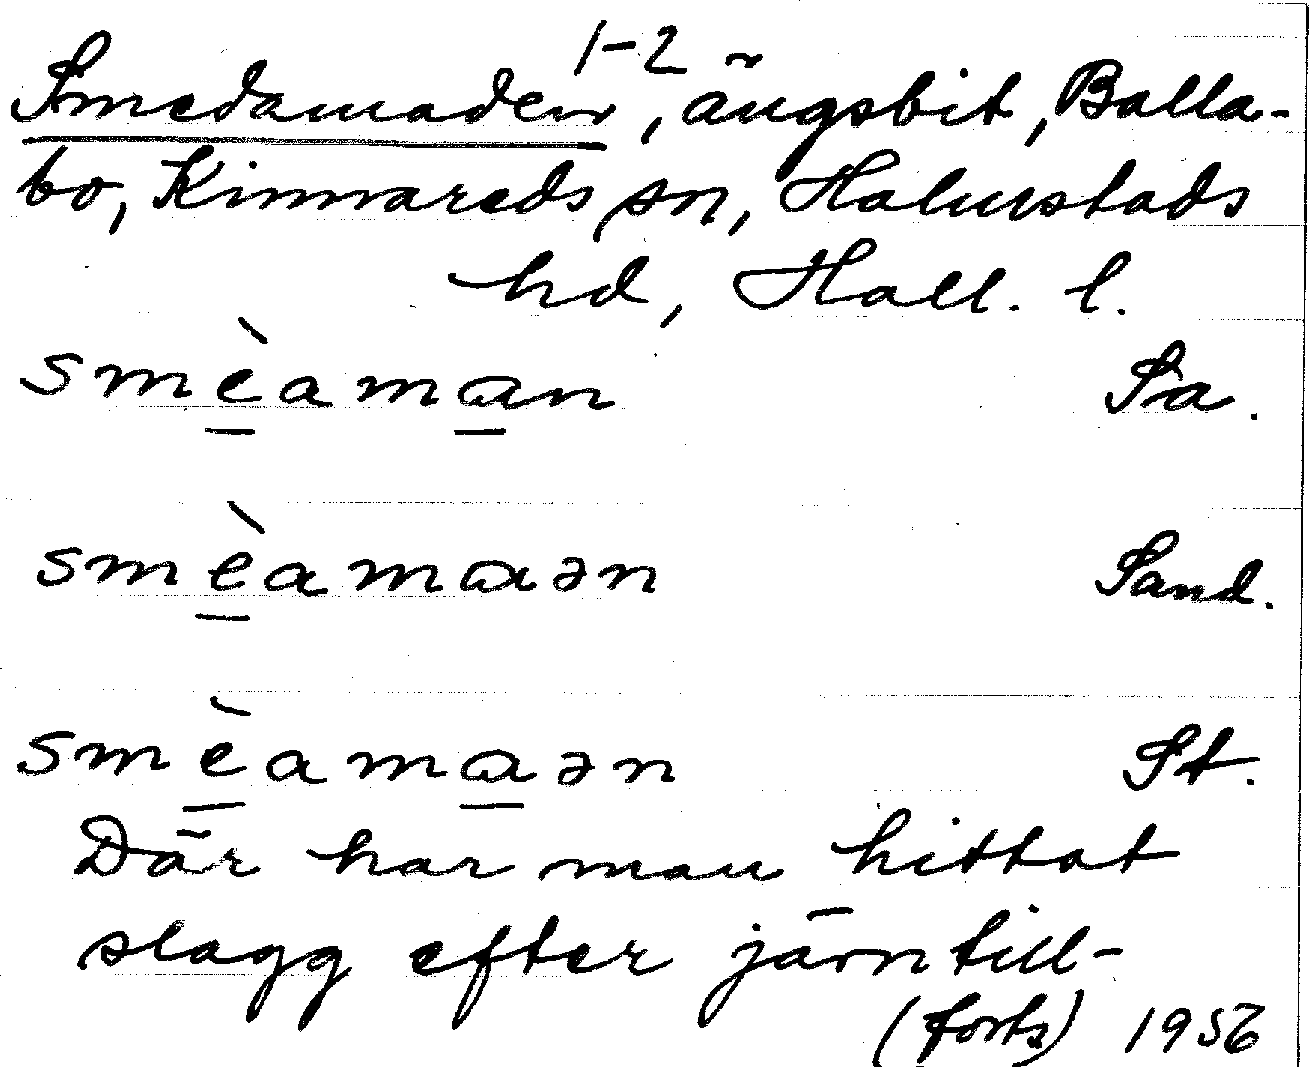 1-2
Smedamaden, ängsbit, Balla-
bo, Kinnareds sn, Halmstads
hd, Hall. l.
smèaman Sa.
smèamaən Sand.
smèamaən St.
Där har man hittat
slagg efter järntill-
(forts) 1956